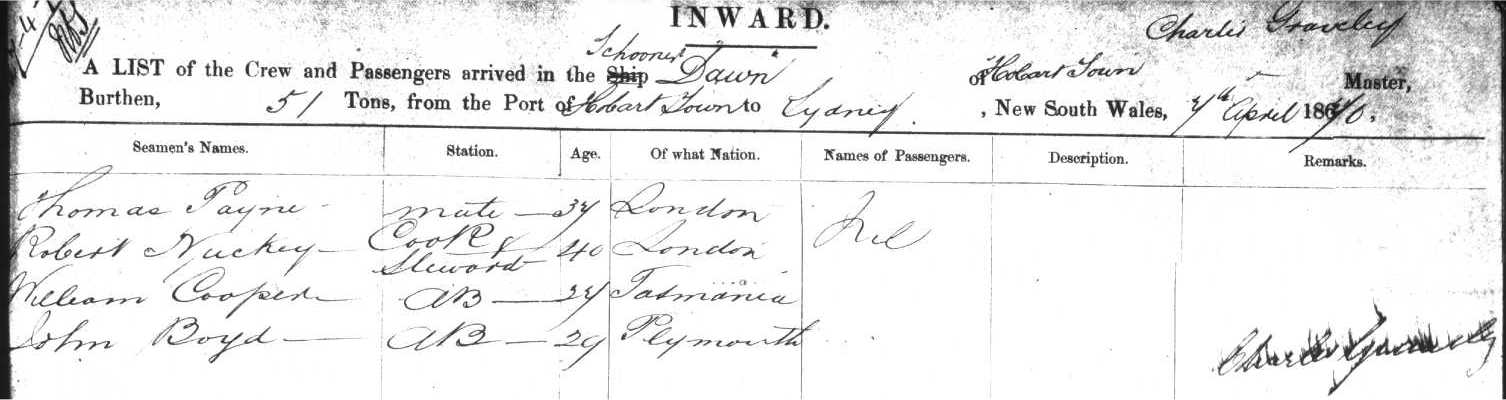 INWARD.
Charles Graveley
A LIST of the Crew and Passengers arrived in the Ship Schooner "Dawn" of Hobart Town Master,
Burthen, 51 Tons, from the Port of Hobart Town to Sydney. , New South Wales, 7th April 1870,
Seamen's Names. Station. Age. Of what Nation. Names of Passengers. Description. Remarks.
Thomas Payne mate 37 London Nil
Robert Nuckey Cook & Steward 40 London
William Cooper AB 27 Tasmania
John Boyd AB 29 Plymouth
Charles Graveley